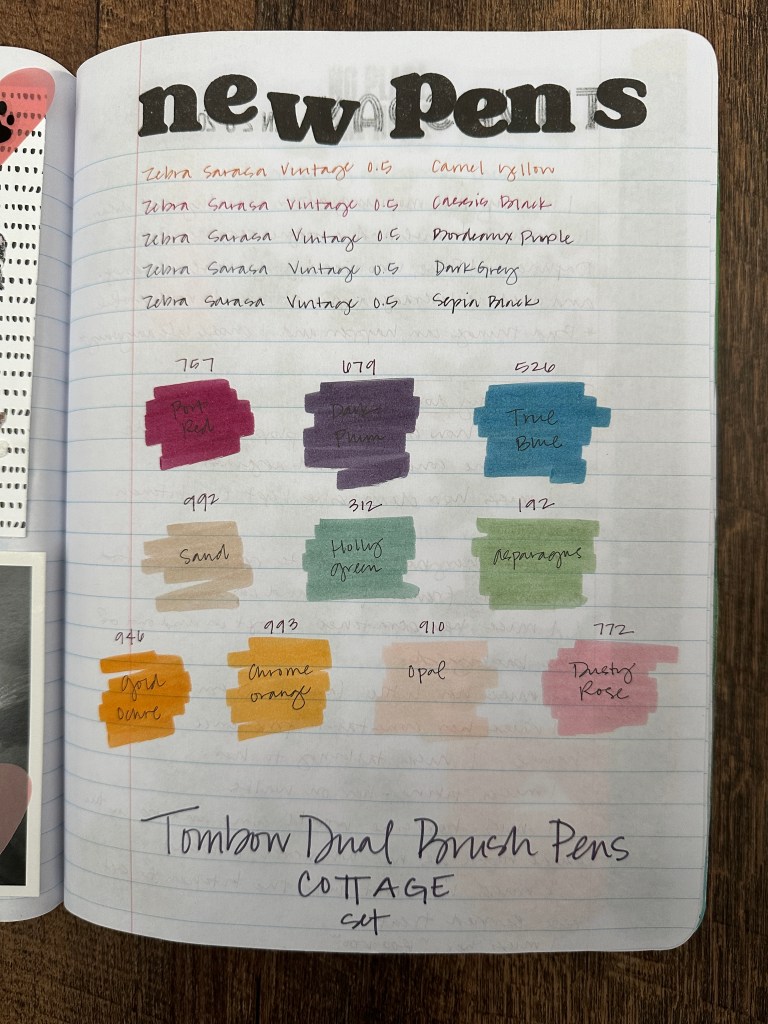 new pens
Zebra Sarasa Vintage 0.5 Camel yellow
Zebra Sarasa Vintage 0.5 Cassis Black
Zebra Sarasa Vintage 0.5 Bordeaux Purple
Zebra Sarasa Vintage 0.5 Dark Grey
Zebra Sarasa Vintage 0.5 Sepia Black
757 679 526
Port Dark True
Red Plum Blue
992 312 192
Sand Holly asparagus
green
946 993 910 772
gold Chrome Opal Dusty
ochre orange Rose
Tombow Dual Brush Pens
COTTAGE
set